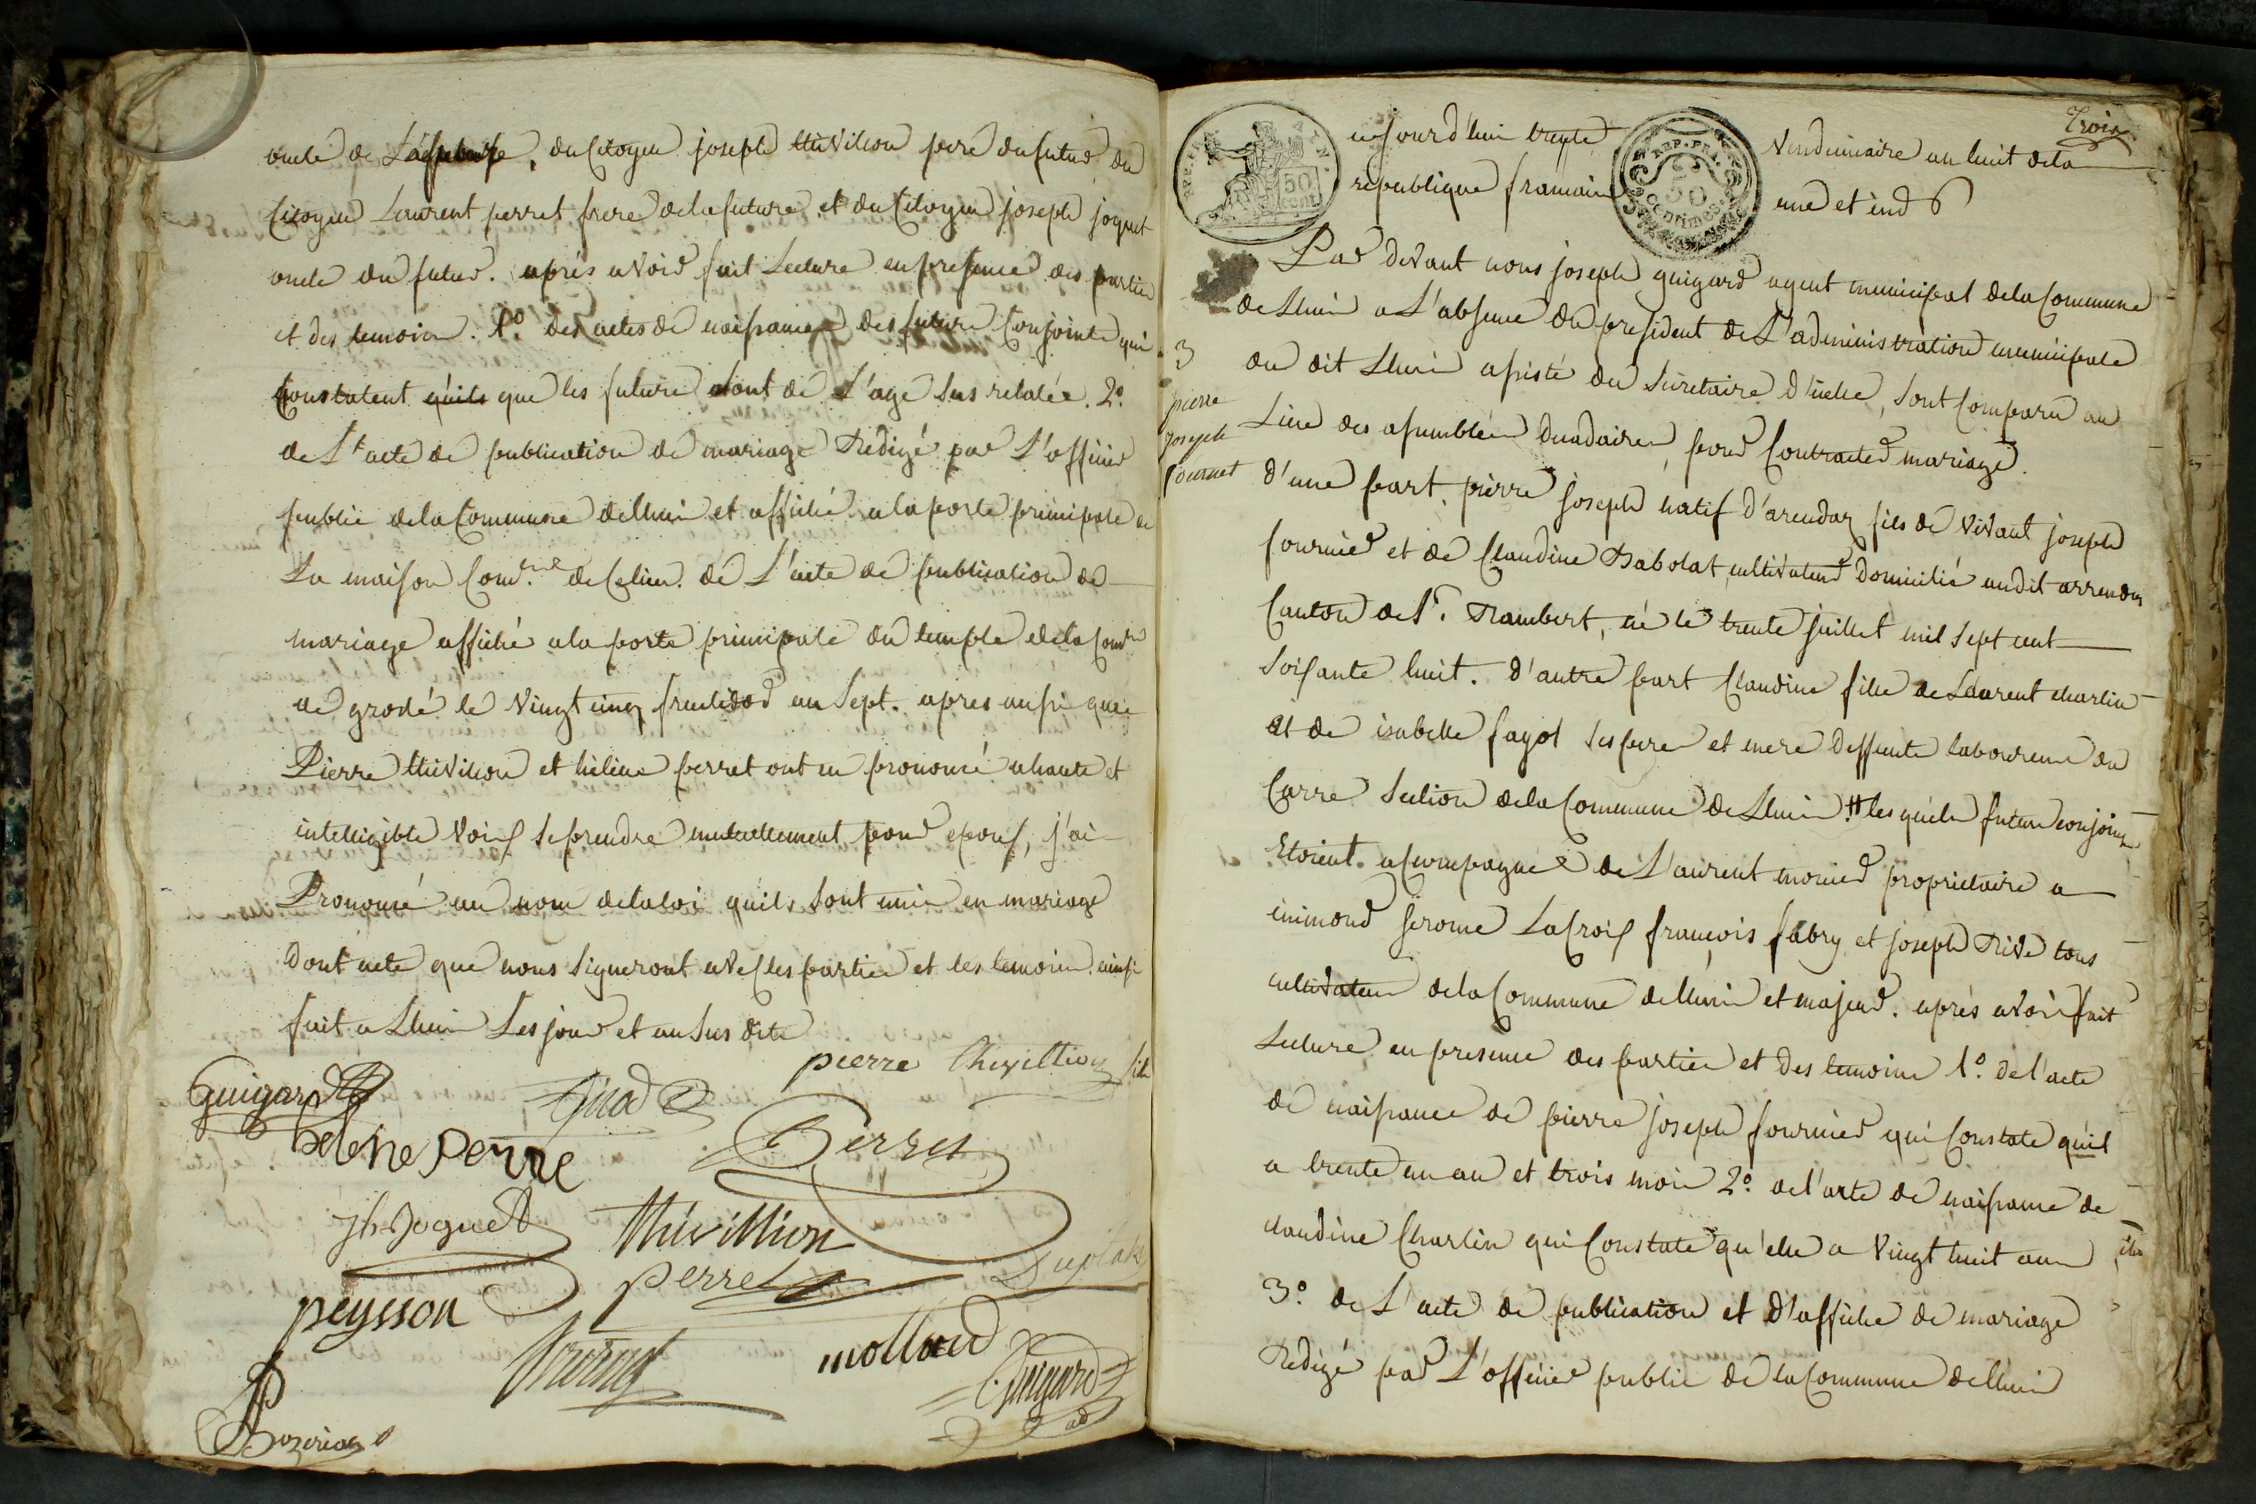 oncle de Laditte, du Citoyen joseph thevilion pere du futur, du
Citoyen Laurent perret frere dela future et du Citoyen joseph joguet
oncle du futur. après avoir fait Lecture en presence des partie
et des temoin. 1º des actes de naissance des future Conjoints qui
Constatent quils que les future sont de L'age sus relatée. 2º
de L'acte de publication de mariage Redigé par L'officier
public dela Commune de lhuis et affiché a la porte principale de
La maison Comne de Celieu. de L'acte de publication de
mariage affiché a la porte principale du temple de la Comne
de le vingt cinq fructidor an Sept. apres aussi que
Pierre thévilion et hélène perret ont eu prononcé a haute et
intelligible voix se prendre mutuellement pour epoux, j'ai
Prononcé au nom dela loi quils sont unis en mariage
Dont acte que nous signeront avec les partie et les temoin ainsi
fait a Lhuis Les jour et an sus dite
pierre thevillion fils
Guigard
helene perre
Perret
jh joguet
thévillion
perret
peysson
molland
Guigard
Trois
aujourd'hui trente vendemiaire an huit dela
republique francaise une et ind
REP. FRA.
50 centimes
50 cent
Par devant nous joseph guigard agent municipal dela Commune
de Lhuis a L'absence du president de L'administration municipale
3
du dit Lhuis assisté du Sécretaire d'icelle, sont Comparu au
pierre
joseph
fournet
Lieu des assemblée decadaire, pour Contracter mariage.
d'une part, pierre joseph natif d'arendaz fils de vivant joseph
fournier et de Claudine Babolat cultivateur Domicilié audit arrendaz
Canton de St. Rambert, né le trente juillet mil sept cent
soisante huit. d'autre part Claudine fille de Laurent charlin
et de isabelle fagot ses pere et mere deffunte laboureure du
Carre Section dela Commune de Lhuis # lesquels future conjoints
Etoient accompagné de Laurent monier proprietaire a
inimond jerome Lacroix françois fabry et joseph Rive tous
cultivateur dela Commune de lhuis et majeur. après avoir fait
Lecture en presence des partie et des temoins 1º. de l'acte
de naissance de pierre joseph fournier qui Constate qu'il
a trente un an et trois mois 2º. de l'acte de naissance de
claudine Charlin qui Constate qu'elle a vingt huit ans
3º. de L'acte de publication et d'affiche de mariage
Redigé par L'officier public de la Commune de lhuis